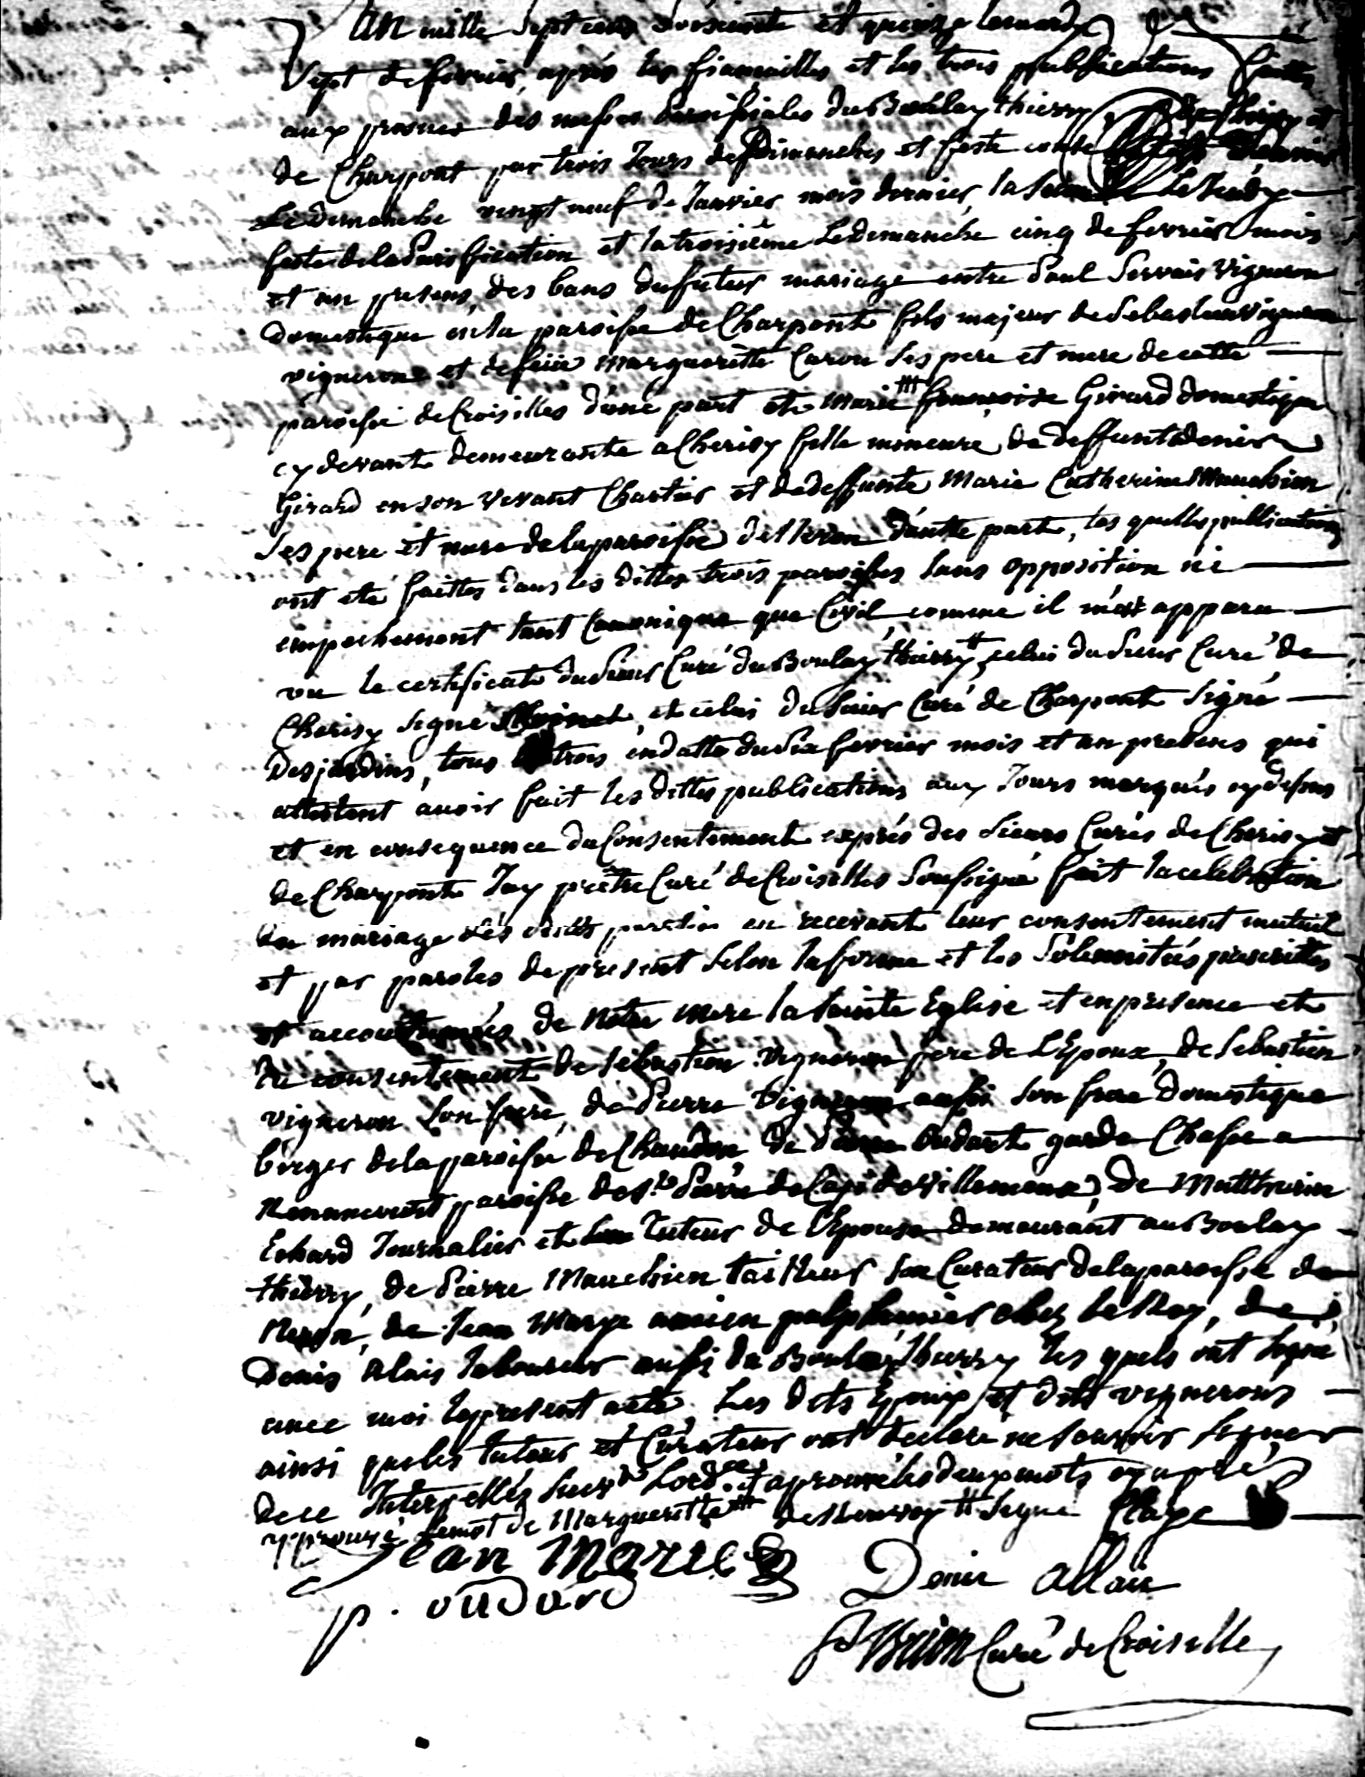 L'an mille sept cens soixante et quinze le mardy
sept de fevrier, apres les fiancailles et les trois publications faittes
aux prosnes des messes paroissiales du Boullay thierry, de Cherisy et
de Charpont par trois Jours de Dimanches et feste
Le dimanche vingt neuf de Janvier mois dernier, la Le Jeudy
feste de la Purification et la troisième Le dimanche cinq de fevrier mois
et an present, des bans du futur mariage entre Paul Servais Vigneron
domestique en la paroisse de Charpont fils majeur de Sebastien Vigneron
vigneron et de feüe Margueritte Caron ses pere et mere de cette
paroisse de Croisilles d'une part et Marie francoise Girard domestique
cy devant demeurante a Cherisy fille mineure de deffunt denis
Girard en son vivant Chartier et de deffunte Marie Catherine Mauchien
ses pere et mere de la paroisse de Neron d'autre part, les quelles publications
ont eté faittes dans les dittes trois paroisses sans opposition ni
empechement tant Canonique que Civil comme il m'est apparu
vu le certificat du Sieur Curé du Boulay thierry ++, celui du Sieur Curé de
Cherisy signé et celui du Sieur Curé de Charpont signé
Desjardins, tous trois en datte du Six fevrier mois et an presens qui
attestent avoir fait les dittes publications aux Jours marqués cy dessus
et en consequence du Consentement exprés des Sieurs Curés de Cherisy et
de Charpont J'ay prêtre Curé de Croisilles Soussigné fait la celebration
du mariage des dittes parties en recevant leur consentement mutuel
et par paroles de present selon la forme et les Solemnités prescrittes
et accoutumées de Notre mere la Sainte Eglise et en presence et
du consentement de Sebastien vigneron pere de L'Epoux, de Sebastien
vigneron son frere, de Pierre Vigneron aussi son frere domestique
berger de la paroisse de Chaudon de Pierre Oudart garde Chasse a
Renancourt paroisse de St Pierre de de Villemeux, de Matthurin
Echard Journalier et Tuteur de l'Epouse demeurant au Boulay
thierry, de Pierre Mauchien tailleur son Curateur de la paroisse de
Neron, de Jean Marye ancien palphernier chez Le Roy, de
Denis Alais laboureur aussi du Boulay Thierry les quels ont signé
avec moi le present acte. Les dits Epoux et dits vignerons
ainsi que les tuteur et Curateur ont declaré ne scavoir signer
de ce Interpellés suivt Lordce approuvé les deux mots cy apres
approuvé le mot de Marguerite +++ ++ signé
Jean Marie Denis Allais
p. oudard
Curé de Croiselle